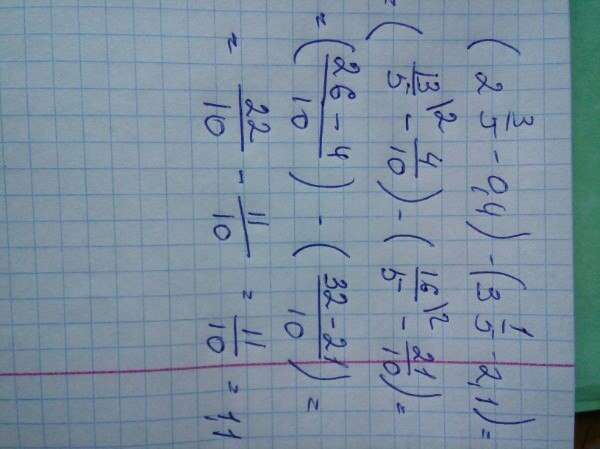 (2 3/5 - 0,4) - (3 1/5 - 2,1) =
= (13/5 \2 - 4/10) - (16/5 \2 - 21/10) =
= (26-4/10) - (32-21/10) =
= 22/10 - 11/10 = 11/10 = 1,1